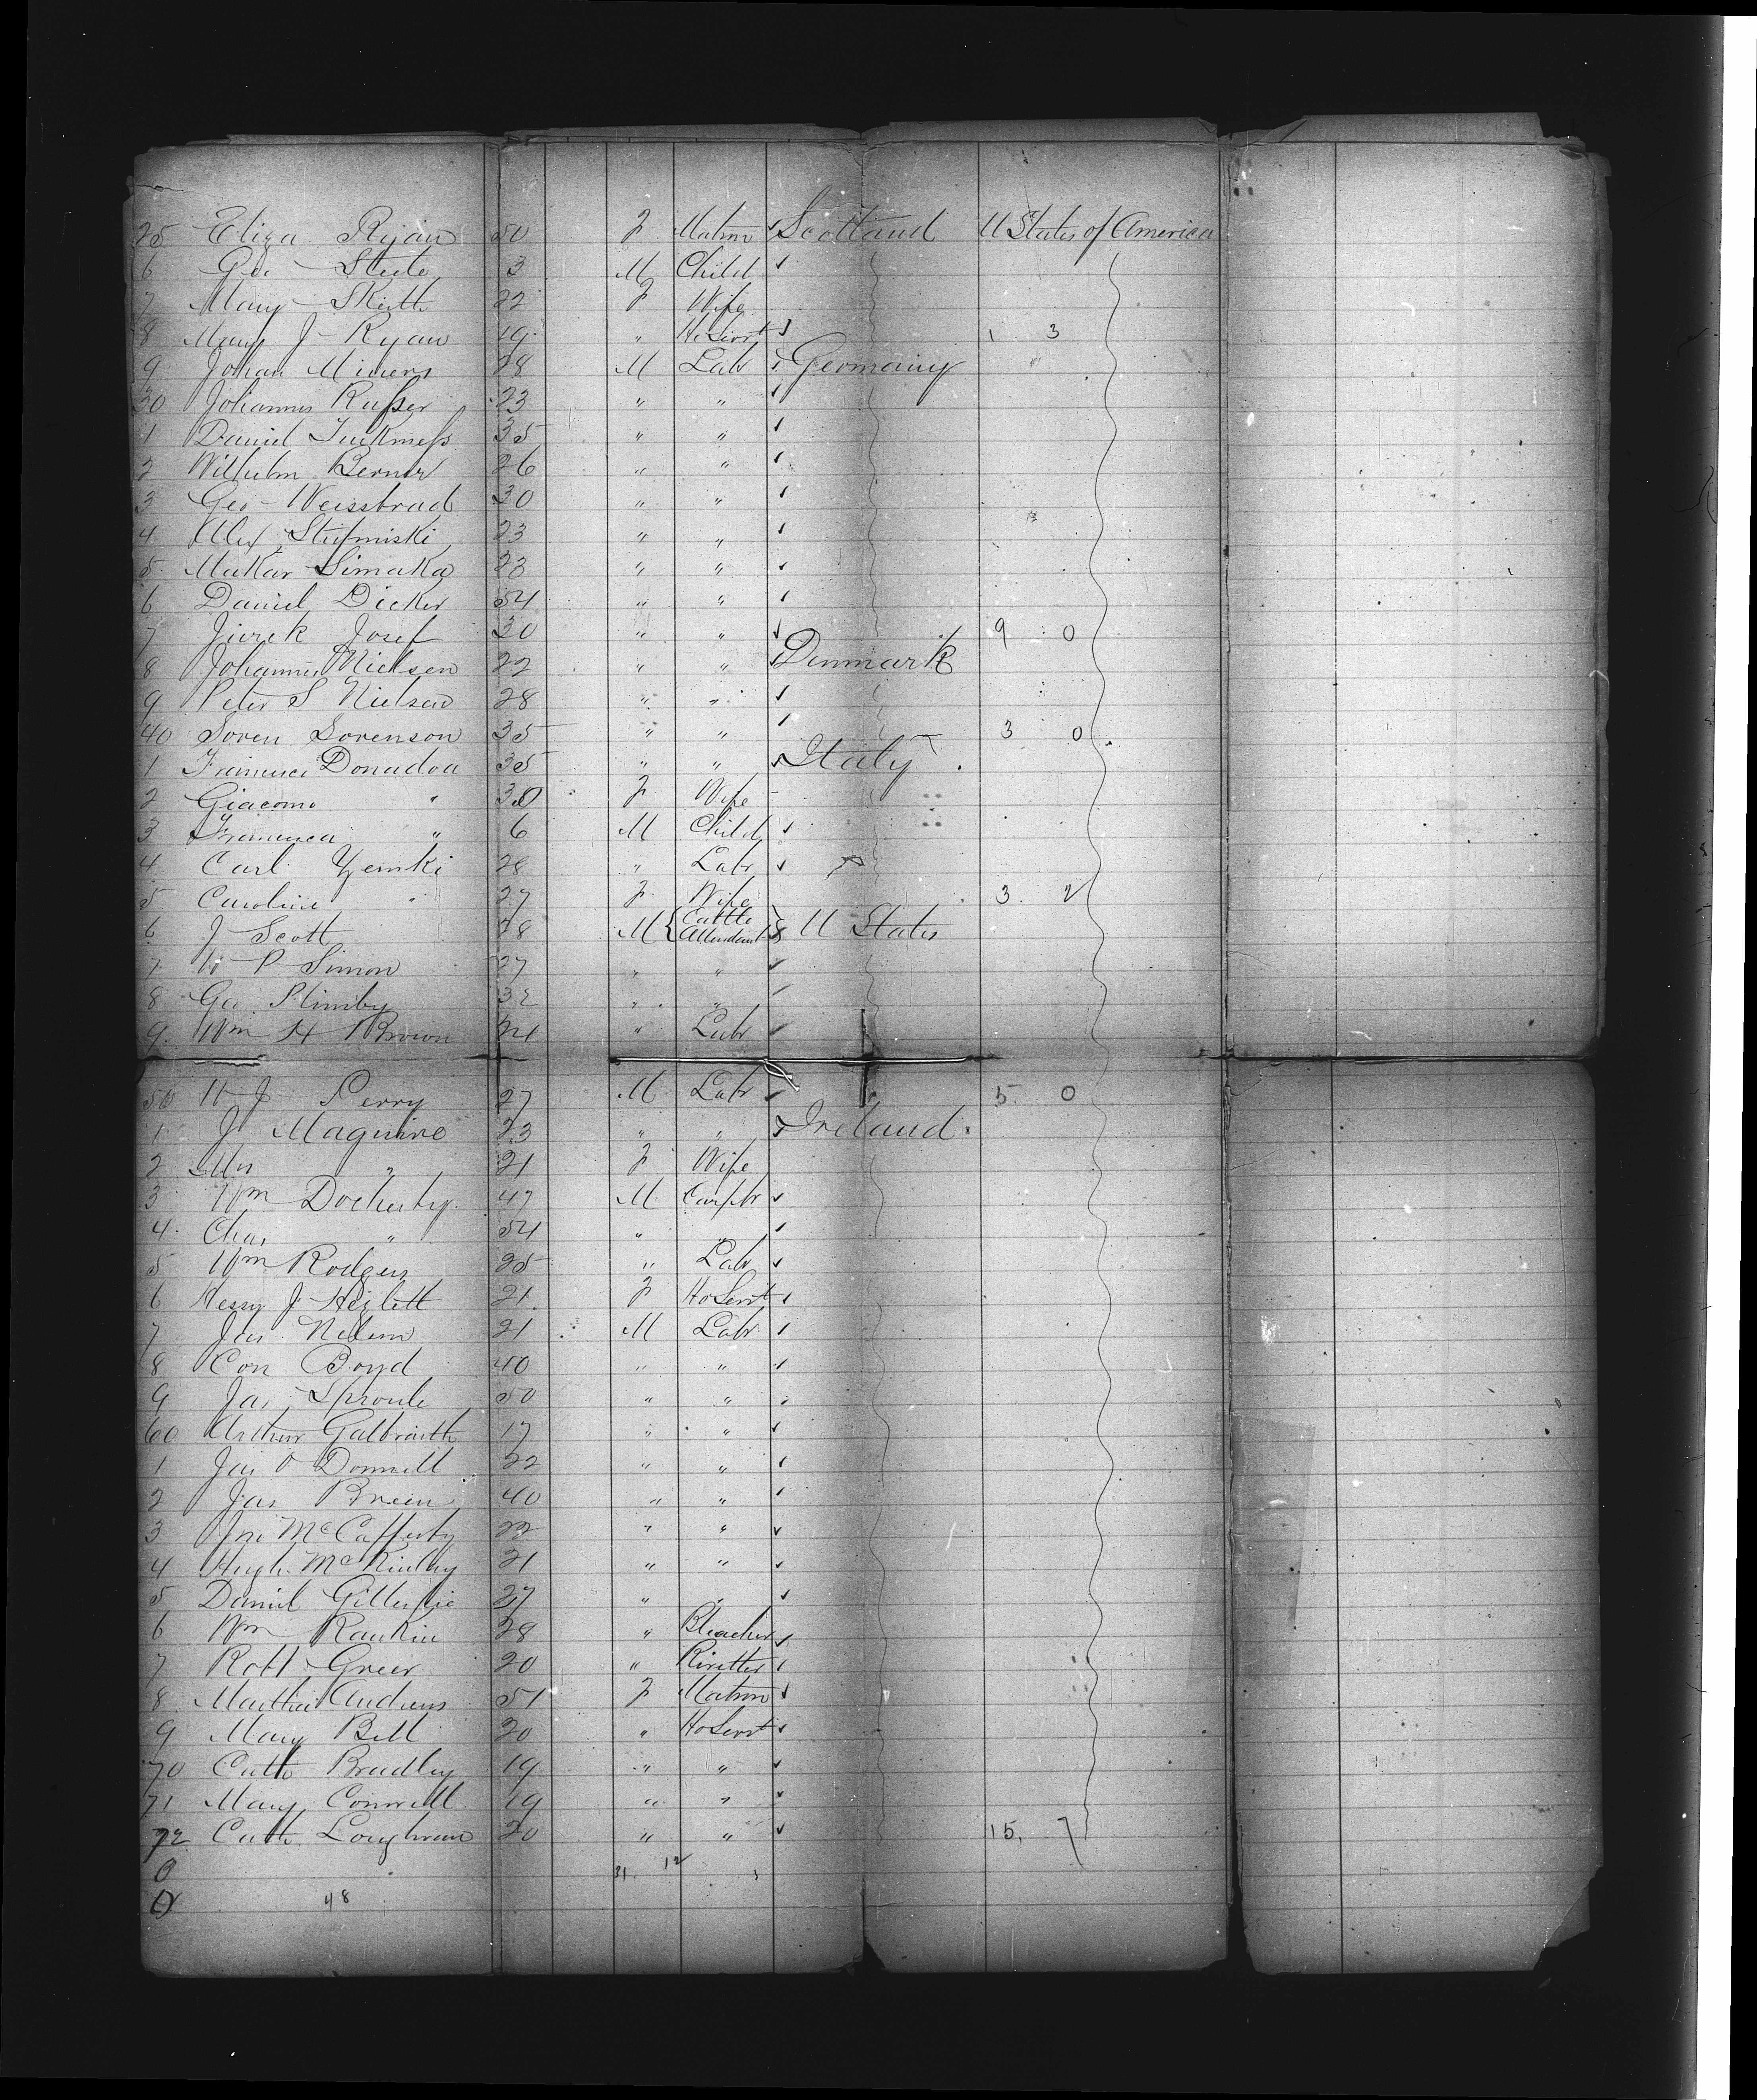 25 Eliza Ryan 50 F Matron Scotland U States of America
6 Geo Steele 3 M Child
7 Mary 22 F Wife
8 Mary J Ryan 19 " Ho Servt 1 3
9 Johan 28 M Labr Germany
30 Johannes 23 " "
1 Daniel 35 " "
2 Wilhelm Berner 26 " "
3 Geo Weissbrad 30 " "
4 Alex 23 " "
5 Makar Simaka 23 " "
6 Daniel Dicker 54 " "
7 Jurek Josef 30 " " 9 0
8 Johannes Nielsen 22 " " Denmark
9 Peter S Nielsen 28 " "
40 Soren Sorenson 35 " " 3 0
1 Francisco Donadoa 35 " " Italy
2 Giacomo " 30 F Wife
3 Francisca " 6 M Child
4 Carl 28 " Labr
5 Caroline " 27 F Wife 3 2
6 J Scott 28 M Cattle Attendant U States
7 W P Simon 27 " "
8 Geo Plimby 32 " "
9 Wm H Brown 24 " Labr
50 W J Perry 27 M Labr 5 0
1 J Maguire 23 " " Ireland
2 Mrs " 21 F Wife
3 Wm Docherty 47 M Carptr
4 Chas " 54 " "
5 Wm Rodgers 25 " Labr
6 Hessy J Hezlett 21 F Ho Servt
7 Jas Nelson 21 M Labr
8 Con Boyd 40 " "
9 Jas Sproule 50 " "
60 Arthur Galbraith 17 " "
1 Jas O Donnell 22 " "
2 Jas Breen 40 " "
3 Jno McCafferty 22 " "
4 Hugh McKinley 21 " "
5 Daniel Gillespie 27 " "
6 Wm Rankin 28 " Bleacher
7 Robt Greer 20 " Rivetter
8 Martha Andrews 51 F Matron
9 Mary Bell 20 " Ho Servt
70 Cath Bradley 19 " "
71 Mary Conwell 19 " "
72 Cath Loughran 20 " " 15 7
0 31 12
0 48